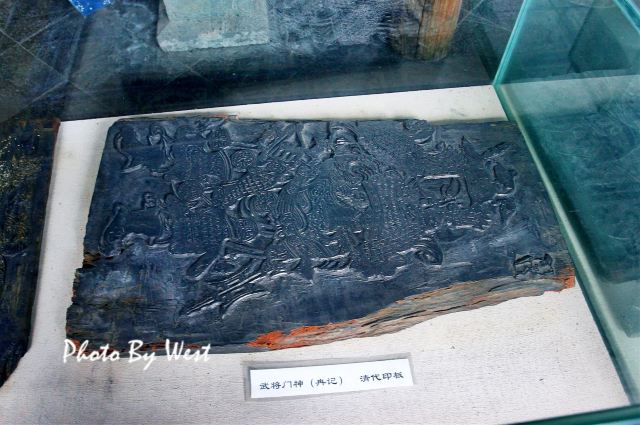 Photo By West
武将门神（冉记）　清代印板